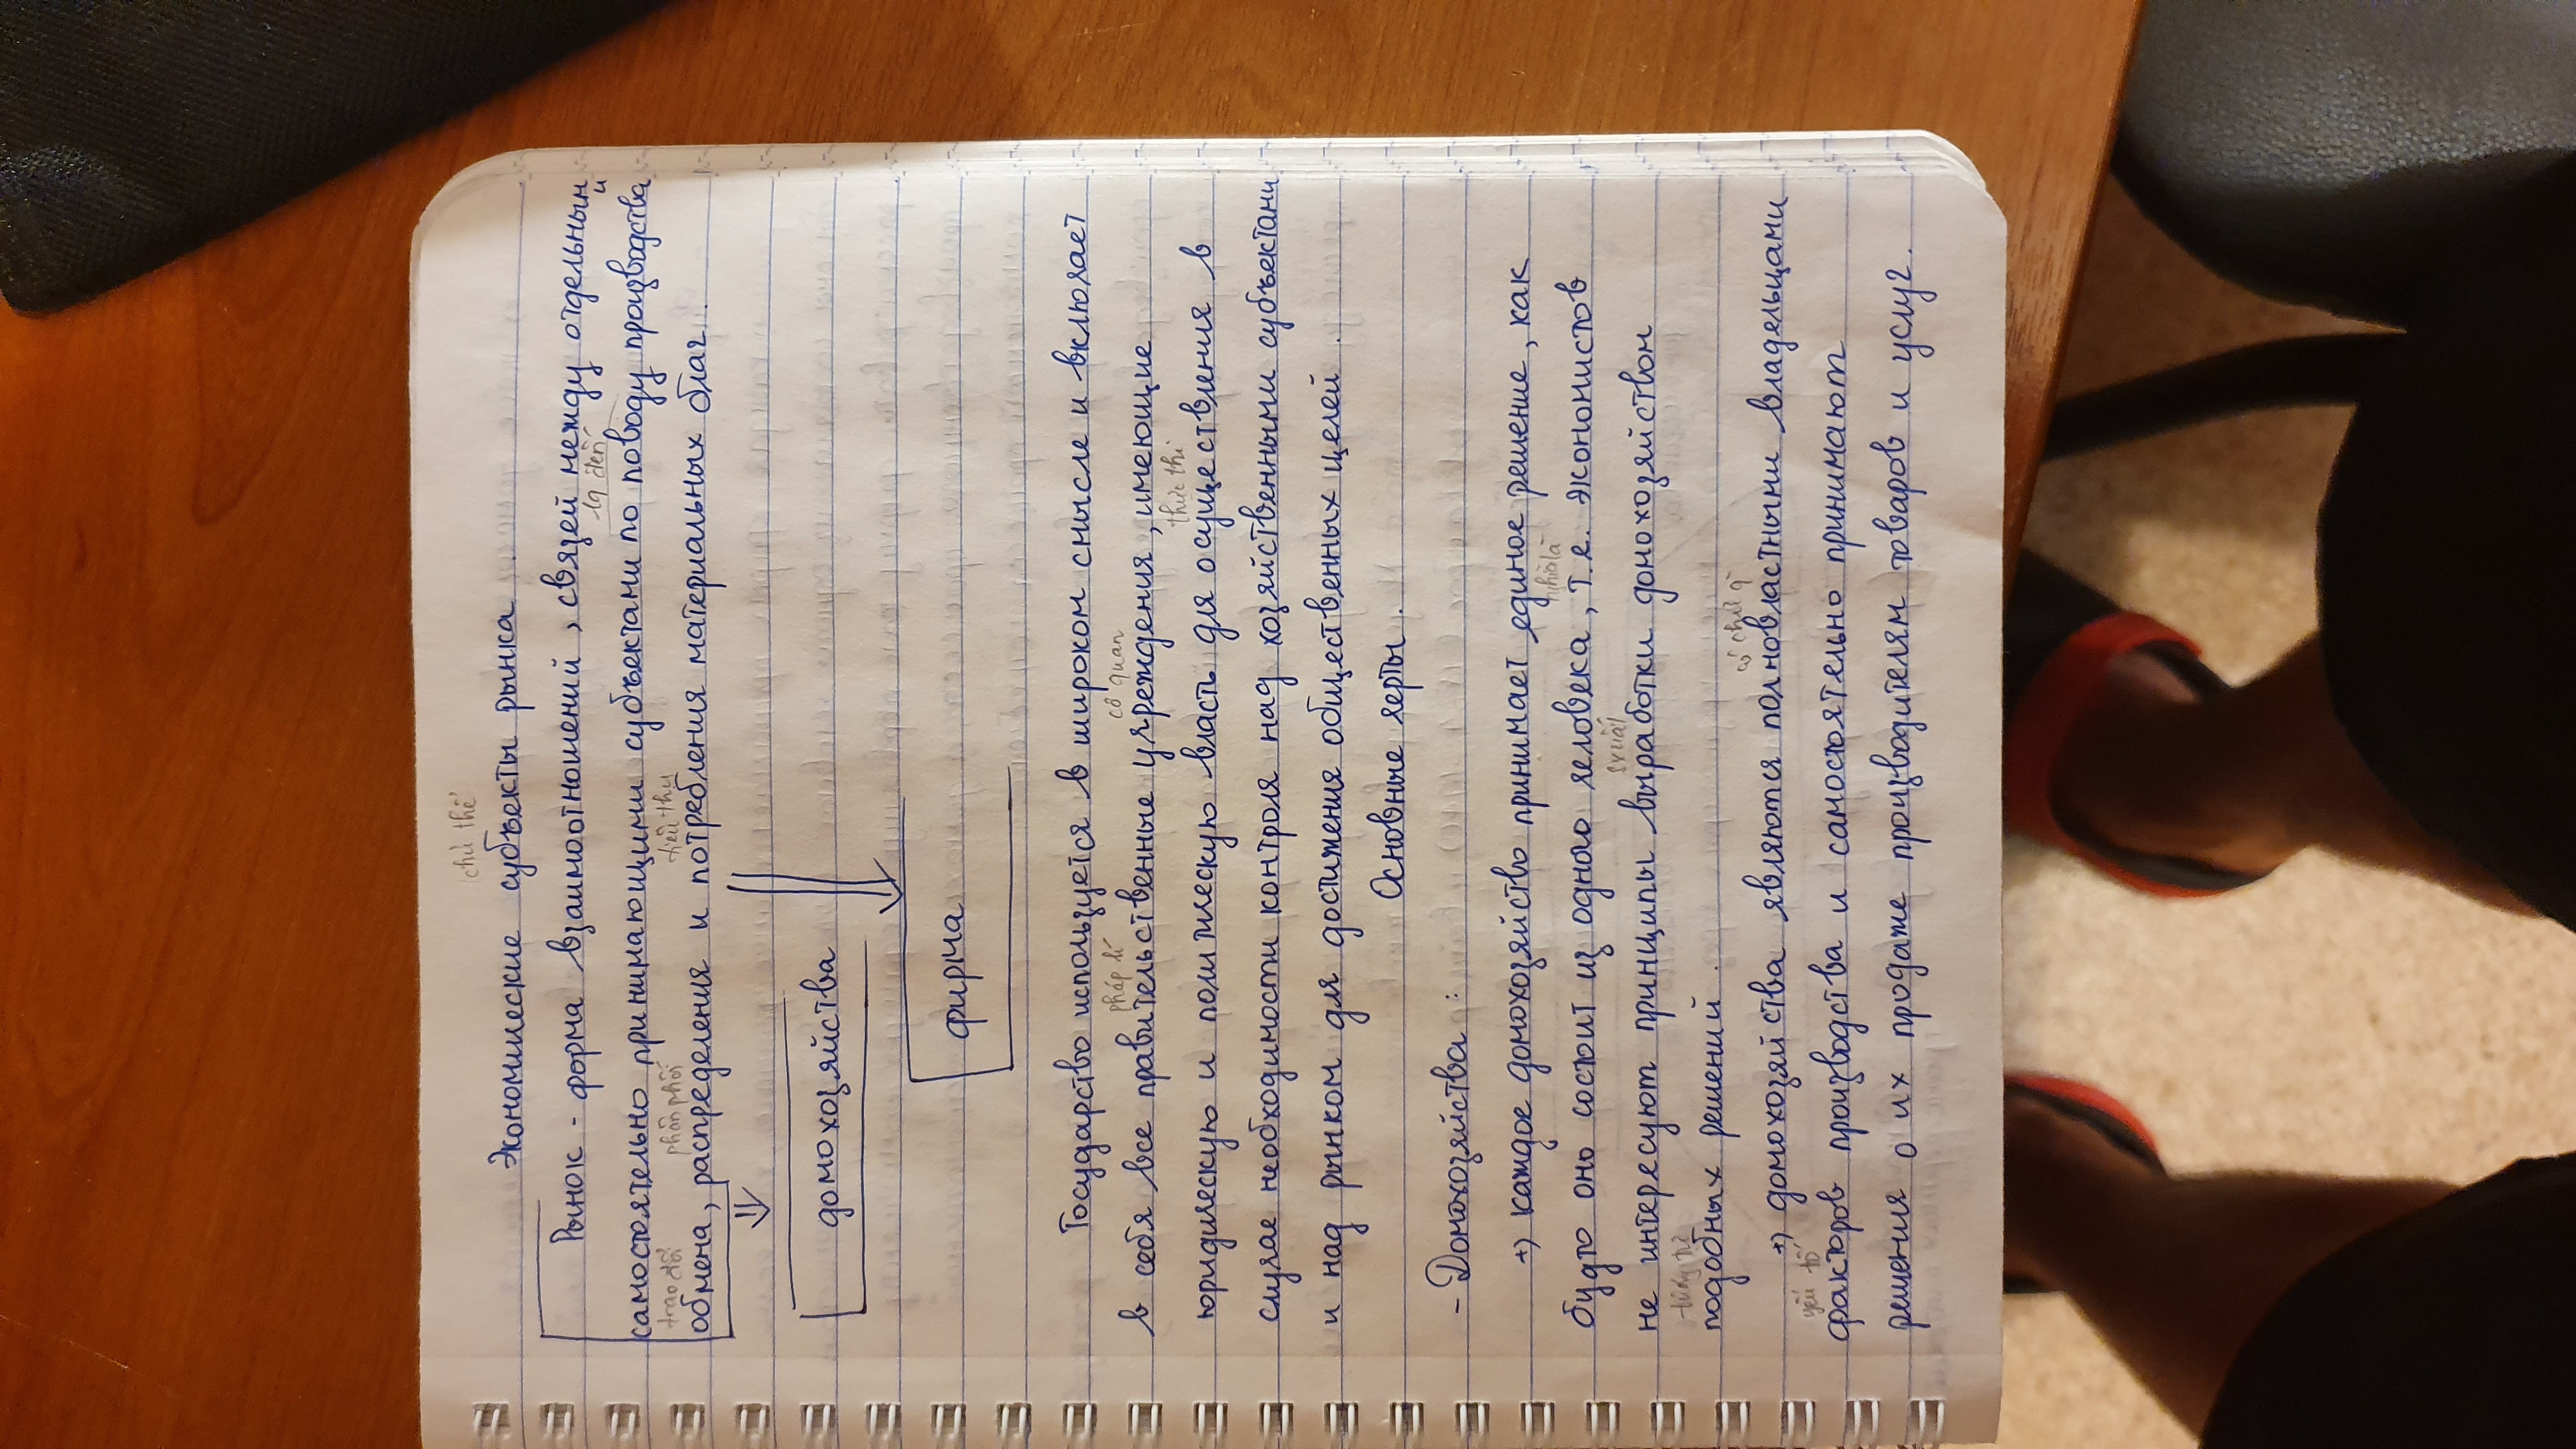 chủ thể
Экономические субъекты рынка
Рынок - форма взаимоотношений, связей между отдельным
и
là đến
самостоятельно принимающими субъектами по поводу производства
trao đổi phân phối tiêu thụ
обмена, распределения и потребления материальных благ.
домохозяйства
фирма
Государство используется в широком смысле и включает
pháp lí cơ quan
в себя все правительственные учреждения, имеющие
thực thi
юридическую и политическую власть для осуществления в
случае необходимости контроля над хозяйственными субъектами
и над рынком для достижения общественных целей.
Основные черты.
- Домохозяйства:
+) каждое домохозяйство принимает единое решение, как
nghĩa là
будто оно состоит из одного человека, т.е. экономистов
sxuất
не интересуют принципы выработки домохозяйством
tương tự
подобных решений.
có chủ q
+) домохозяйства являются полновластными владельцами
yếu tố
факторов производства и самостоятельно принимают
решения о их продаже производителям товаров и услуг.